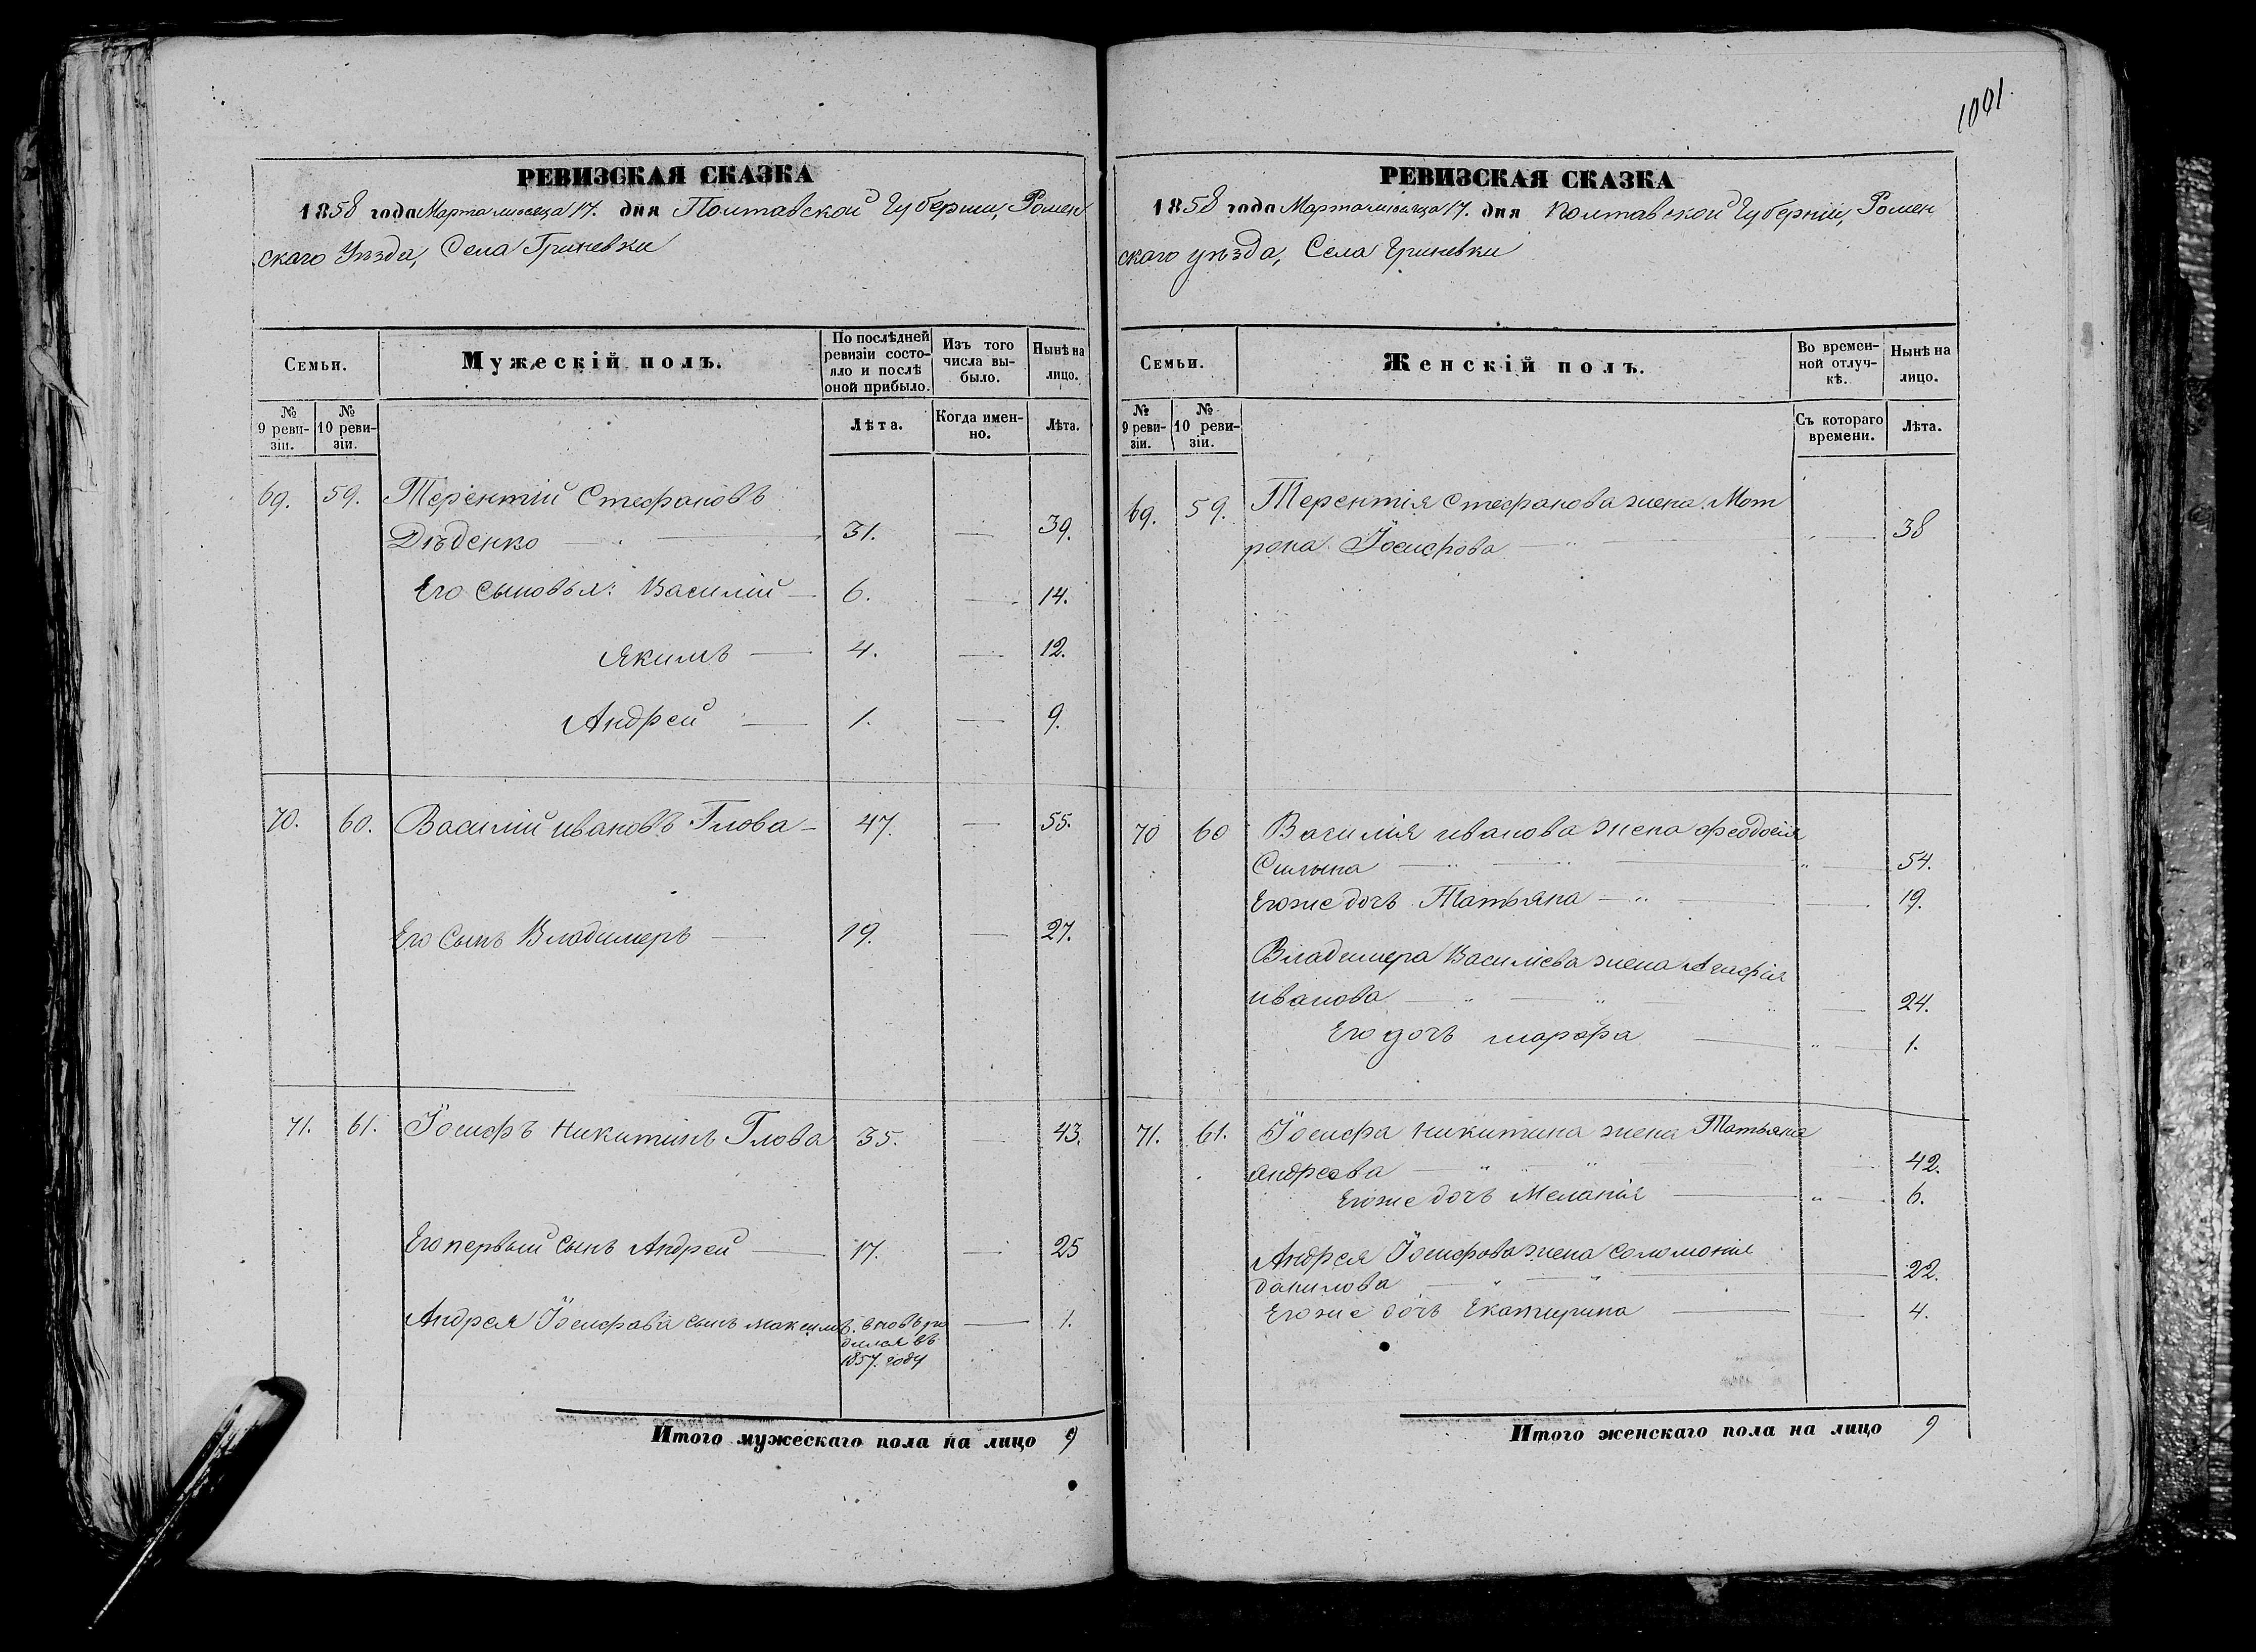 1091.
РЕВИЗСКАЯ СКАЗКА
1858 года Марта месяца 17. дня Полтавской Губерніи, Ромен
скаго Уѣзда, Села Гриневки
Семьи.
Мужескій полъ.
По послѣдней ревизіи состояло и послѣ оной прибыло.
Изъ того числа выбыло.
Нынѣ на лицо.
№ 9 ревизіи.
№ 10 ревизіи.
Лѣта.
Когда именно.
Лѣта.
69. 59. Терентій Стефановъ
Дѣденко 31. 39.
Его сыновья: Василій 6. 14.
Якимъ 4. 12.
Андрей 1. 9.
70. 60. Василій Ивановъ Глова 47. 55.
Его сынъ Владимеръ 19. 27.
71. 61. Іосифъ Никитинъ Глова 35. 43.
Его первый сынъ Андрей 17. 25
Андрея Іосифова сынъ Максимъ вновь ро 1.
дился въ
1857. году
Итого мужескаго пола на лицо 9
РЕВИЗСКАЯ СКАЗКА
1858 года Марта месяца 17. дня Полтавской Губерніи, Ромен
скаго уѣзда, Села Гриневки
Семьи.
Женскій полъ.
Во временной отлучкѣ.
Нынѣ на лицо.
№ 9 ревизіи.
№ 10 ревизіи.
Съ котораго времени.
Лѣта.
69. 59. Терентія Стефанова жена Мот
рона Іосифова 38
70 60 Василія Иванова жена Феодосія
Силина 54.
Его же дочь Татьяна 19.
Владимера Василіева жена Агафія
Иванова 24.
Его дочь Марфа 1.
71. 61. Іосифа Никитина жена Татьяна
Андреева 42.
Его же дочь Меланія 6.
Андрея Іосифова жена Соломонія
Данилова 22.
Его же дочь Екатирина 4.
Итого женскаго пола на лицо 9